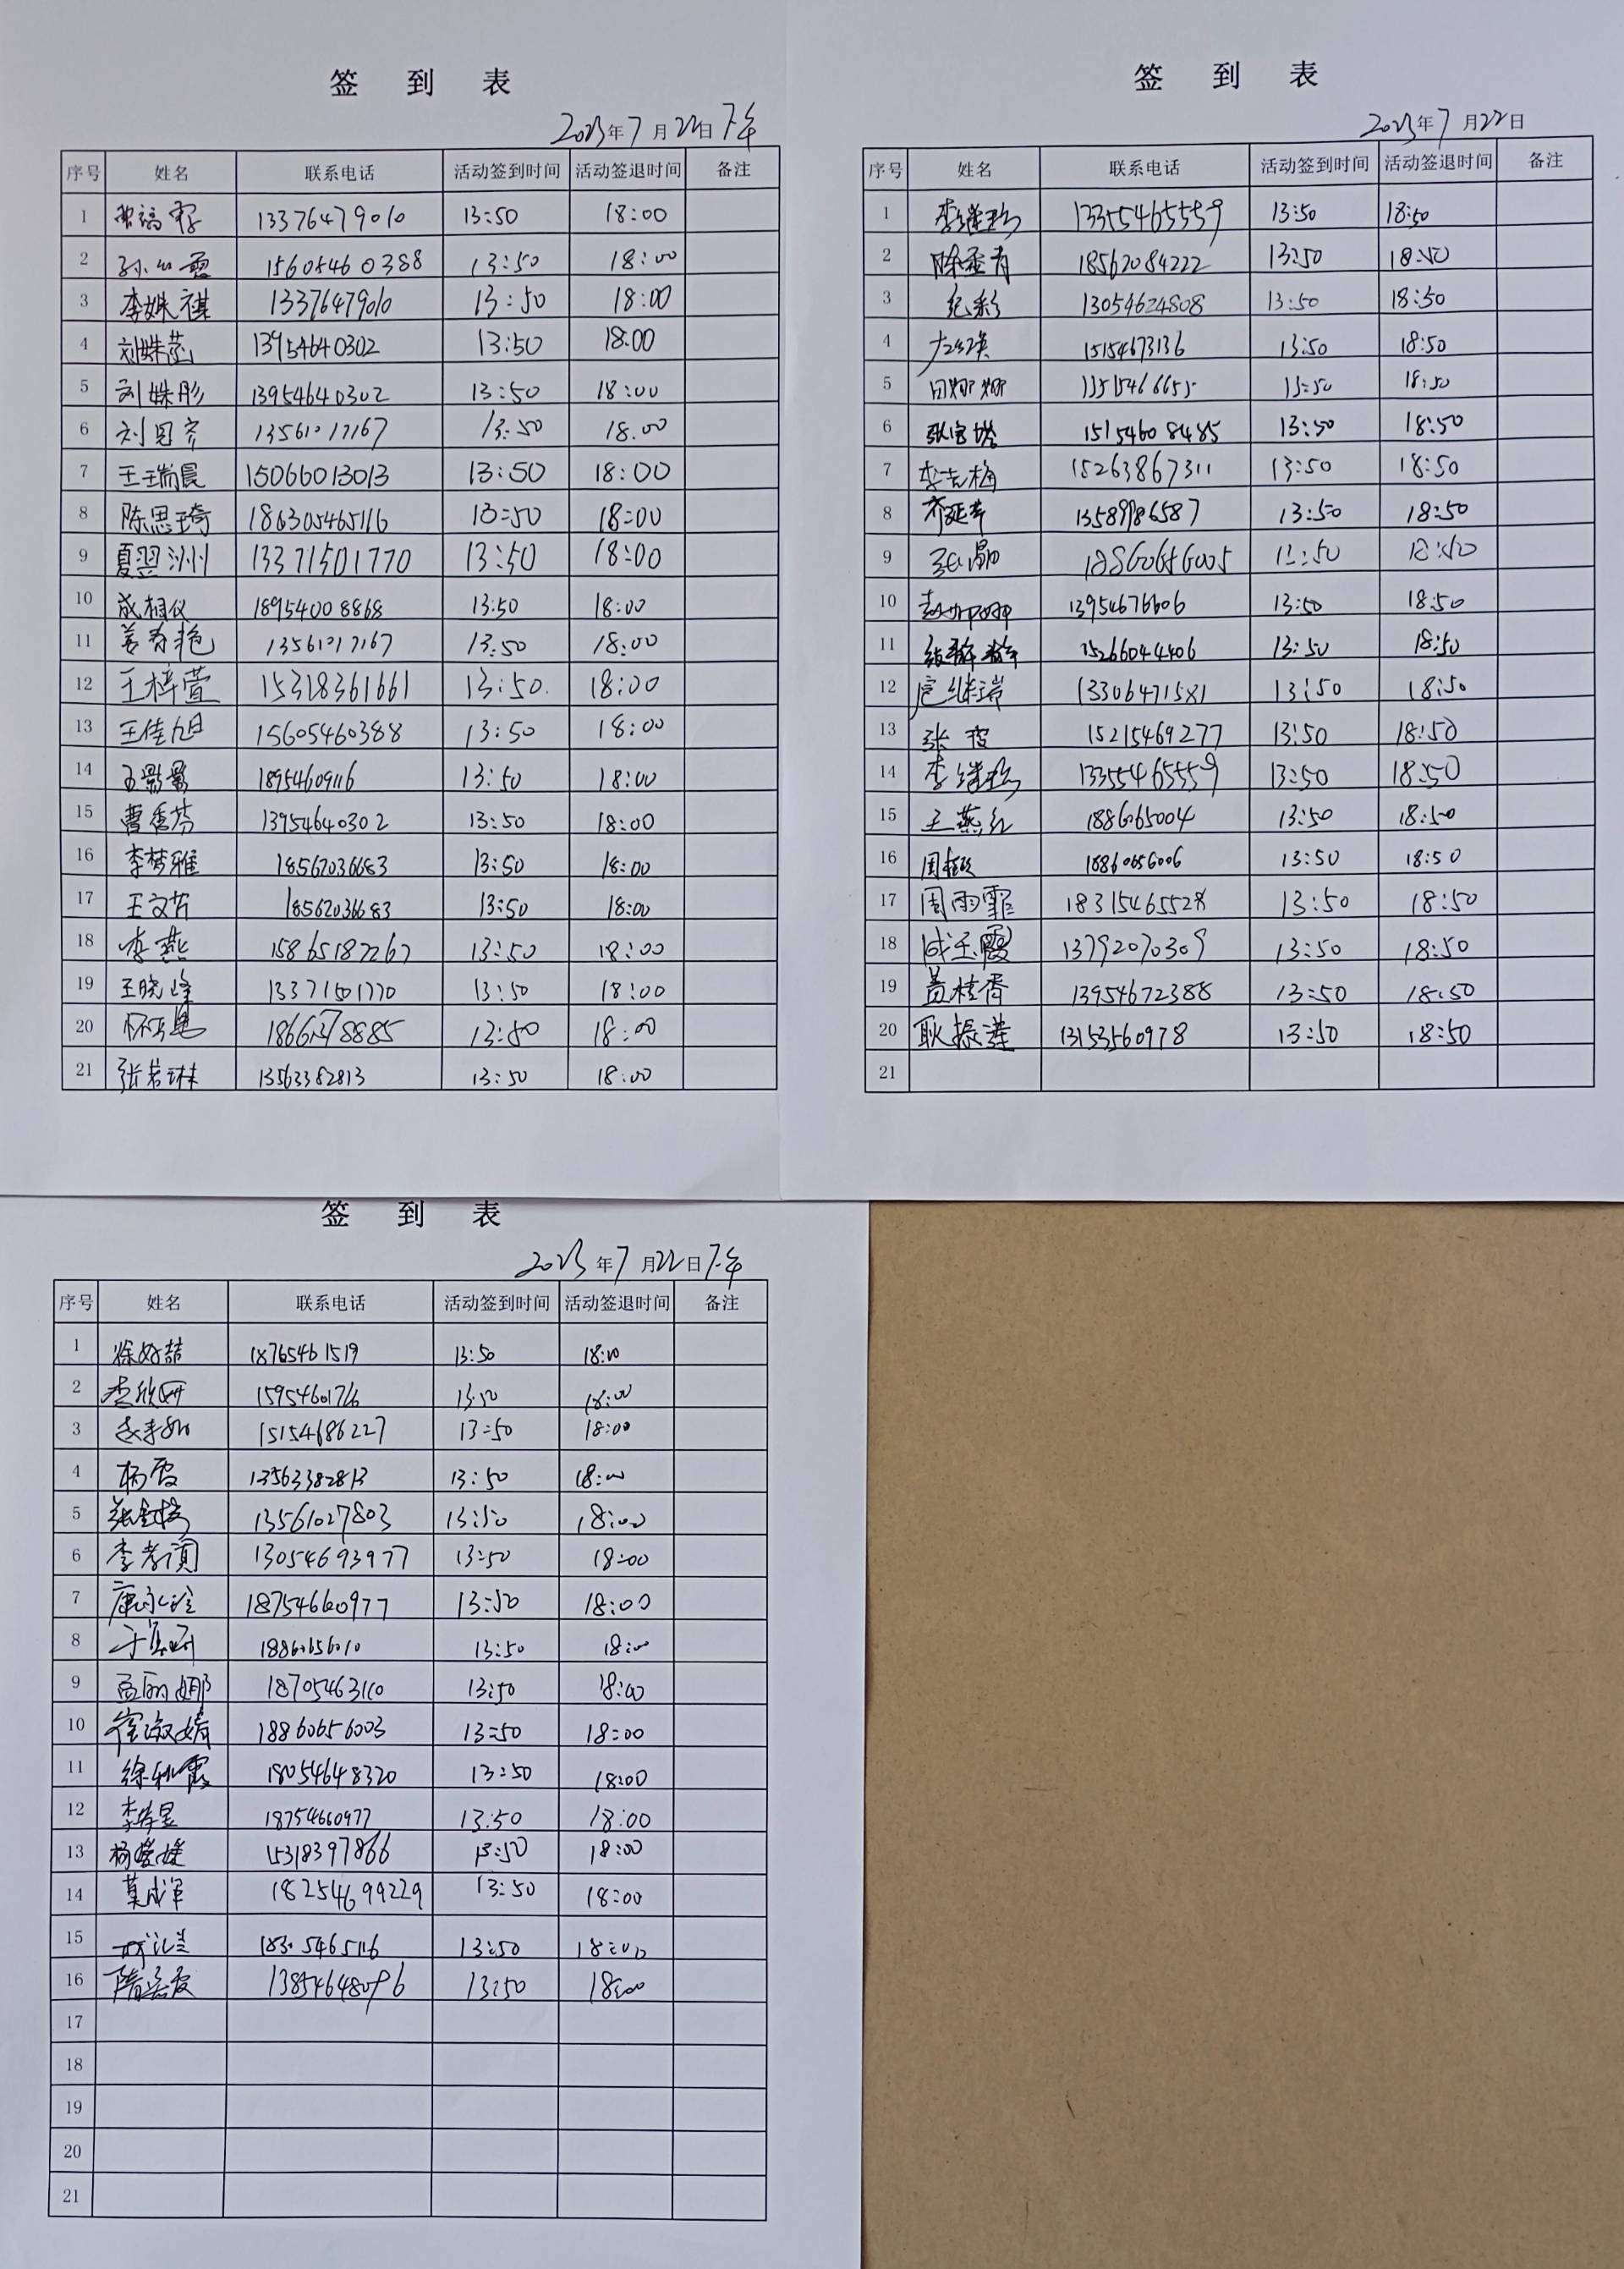 签 到 表
2023年7月22日 下午
序号 姓名 联系电话 活动签到时间 活动签退时间 备注
1 13376479010 13:50 18:00
2 15605460388 13:50 18:00
3 李姝祺 13376479010 13:50 18:00
4 刘姝菡 13954640302 13:50 18:00
5 刘姝彤 13954640302 13:50 18:00
6 13561017167 13:50 18:00
7 王瑞晨 15066013013 13:50 18:00
8 陈思琦 186305465116 13:50 18:00
9 夏翌洲 13371501770 13:50 18:00
10 成相仪 18954008868 13:50 18:00
11 姜春艳 13561017167 13:50 18:00
12 王梓萱 15318361661 13:50 18:00
13 王佳旭 15605460388 13:50 18:00
14 18954609116 13:50 18:00
15 曹秀芬 13954640302 13:50 18:00
16 李梦雅 18562036683 13:50 18:00
17 王文芳 18562036683 13:50 18:00
18 李燕 15865187267 13:50 18:00
19 王晓峰 13371501770 13:50 18:00
20 13:50 18:00
21 张若琳 13563382813 13:50 18:00
签 到 表
2023年7月22日
序号 姓名 联系电话 活动签到时间 活动签退时间 备注
1 13355465559 13:50 18:50
2 陈孟青 18562084222 13:50 18:50
3 纪彩 13054624808 13:50 18:50
4 15154673136 13:50 18:50
5 田娜娜 13:50 18:50
6 张宝塔 15154608485 13:50 18:50
7 李吉梅 15263867311 13:50 18:50
8 齐延华 13589986587 13:50 18:50
9 18860656005 13:50 18:50
10 13954676606 13:50 18:50
11 15266044406 13:50 18:50
12 扈继瑞 13306471581 13:50 18:50
13 15215469277 13:50 18:50
14 13355465559 13:50 18:50
15 王燕红 1886065004 13:50 18:50
16 18860656006 13:50 18:50
17 周雨霏 18315465528 13:50 18:50
18 成玉霞 13792070309 13:50 18:50
19 黄桂香 13954672388 13:50 18:50
20 耿振莲 13153560978 13:50 18:50
21
签 到 表
2023年7月22日 下午
序号 姓名 联系电话 活动签到时间 活动签退时间 备注
1 徐好喆 18765461519 13:50 18:00
2 李欣妍 13:50 18:00
3 15154686227 13:50 18:00
4 杨霞 13563382813 13:50 18:00
5 13561027803 13:50 18:00
6 李孝顺 13054693977 13:50 18:00
7 康永玲 18754660977 13:50 18:00
8 18860656010 13:50 18:00
9 孟丽娜 18705463110 13:50 18:00
10 崔淑婧 18860656003 13:50 18:00
11 徐秋霞 18054648320 13:50 18:00
12 18754660977 13:50 18:00
13 杨媛媛 15318397866 13:50 18:00
14 莫成军 18254699229 13:50 18:00
15 13:50 18:00
16 13854648096 13:50 18:00
17
18
19
20
21